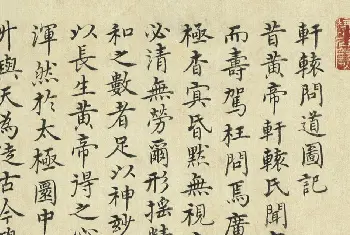 軒轅問道圖記
昔黃帝軒轅氏聞
而壽駕枉問焉廣
極杳冥昏默無視
必清無勞爾形搖精
和之數者足以神妙
以長生黃帝得之心
渾然於太極圈中
與天為徒古今